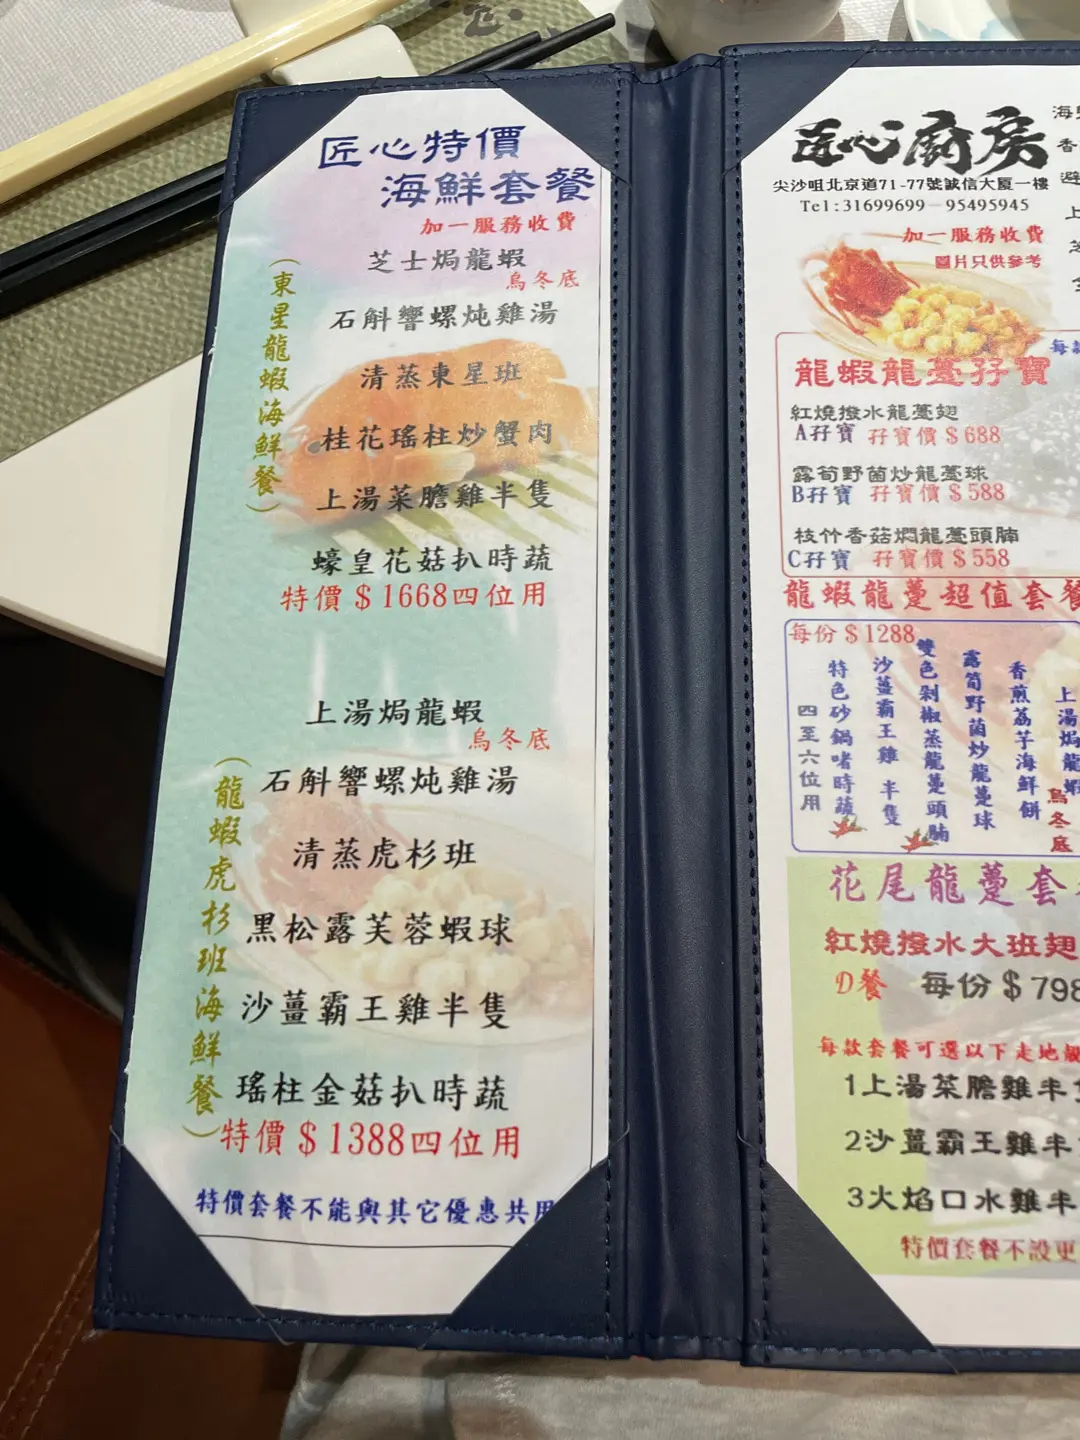 匠心特價
海鮮套餐
加一服務收費
(東星龍蝦海鮮餐)
芝士焗龍蝦
烏冬底
石斛響螺炖雞湯
清蒸東星班
桂花瑤柱炒蟹肉
上湯菜膽雞半隻
蠔皇花菇扒時蔬
特價$1668四位用
(龍蝦虎杉班海鮮餐)
上湯焗龍蝦
烏冬底
石斛響螺炖雞湯
清蒸虎杉班
黑松露芙蓉蝦球
沙薑霸王雞半隻
瑤柱金菇扒時蔬
特價$1388四位用
特價套餐不能與其它優惠共用
匠心廚房
尖沙咀北京道71-77號誠信大厦一樓
Tel:31699699 95495945
加一服務收費
圖片只供參考
海
香
避
上
每款
龍蝦龍躉孖寶
紅燒撥水龍躉翅
A孖寶 孖寶價$688
露筍野菌炒龍躉球
B孖寶 孖寶價$588
枝竹香菇燜龍躉頭腩
C孖寶 孖寶價$558
龍蝦龍躉超值套餐
每份$1288
上湯焗龍蝦
烏冬底
香煎荔芋海鮮餅
露筍野菌炒龍躉球
雙色剁椒蒸龍躉頭腩
沙薑霸王雞半隻
特色砂鍋啫時蔬
四至六位用
花尾龍躉套
紅燒撥水大班翅
D餐 每份$798
每款套餐可選以下走地
1上湯菜膽雞半
2沙薑霸王雞半
3火焰口水雞半
特價套餐不設更